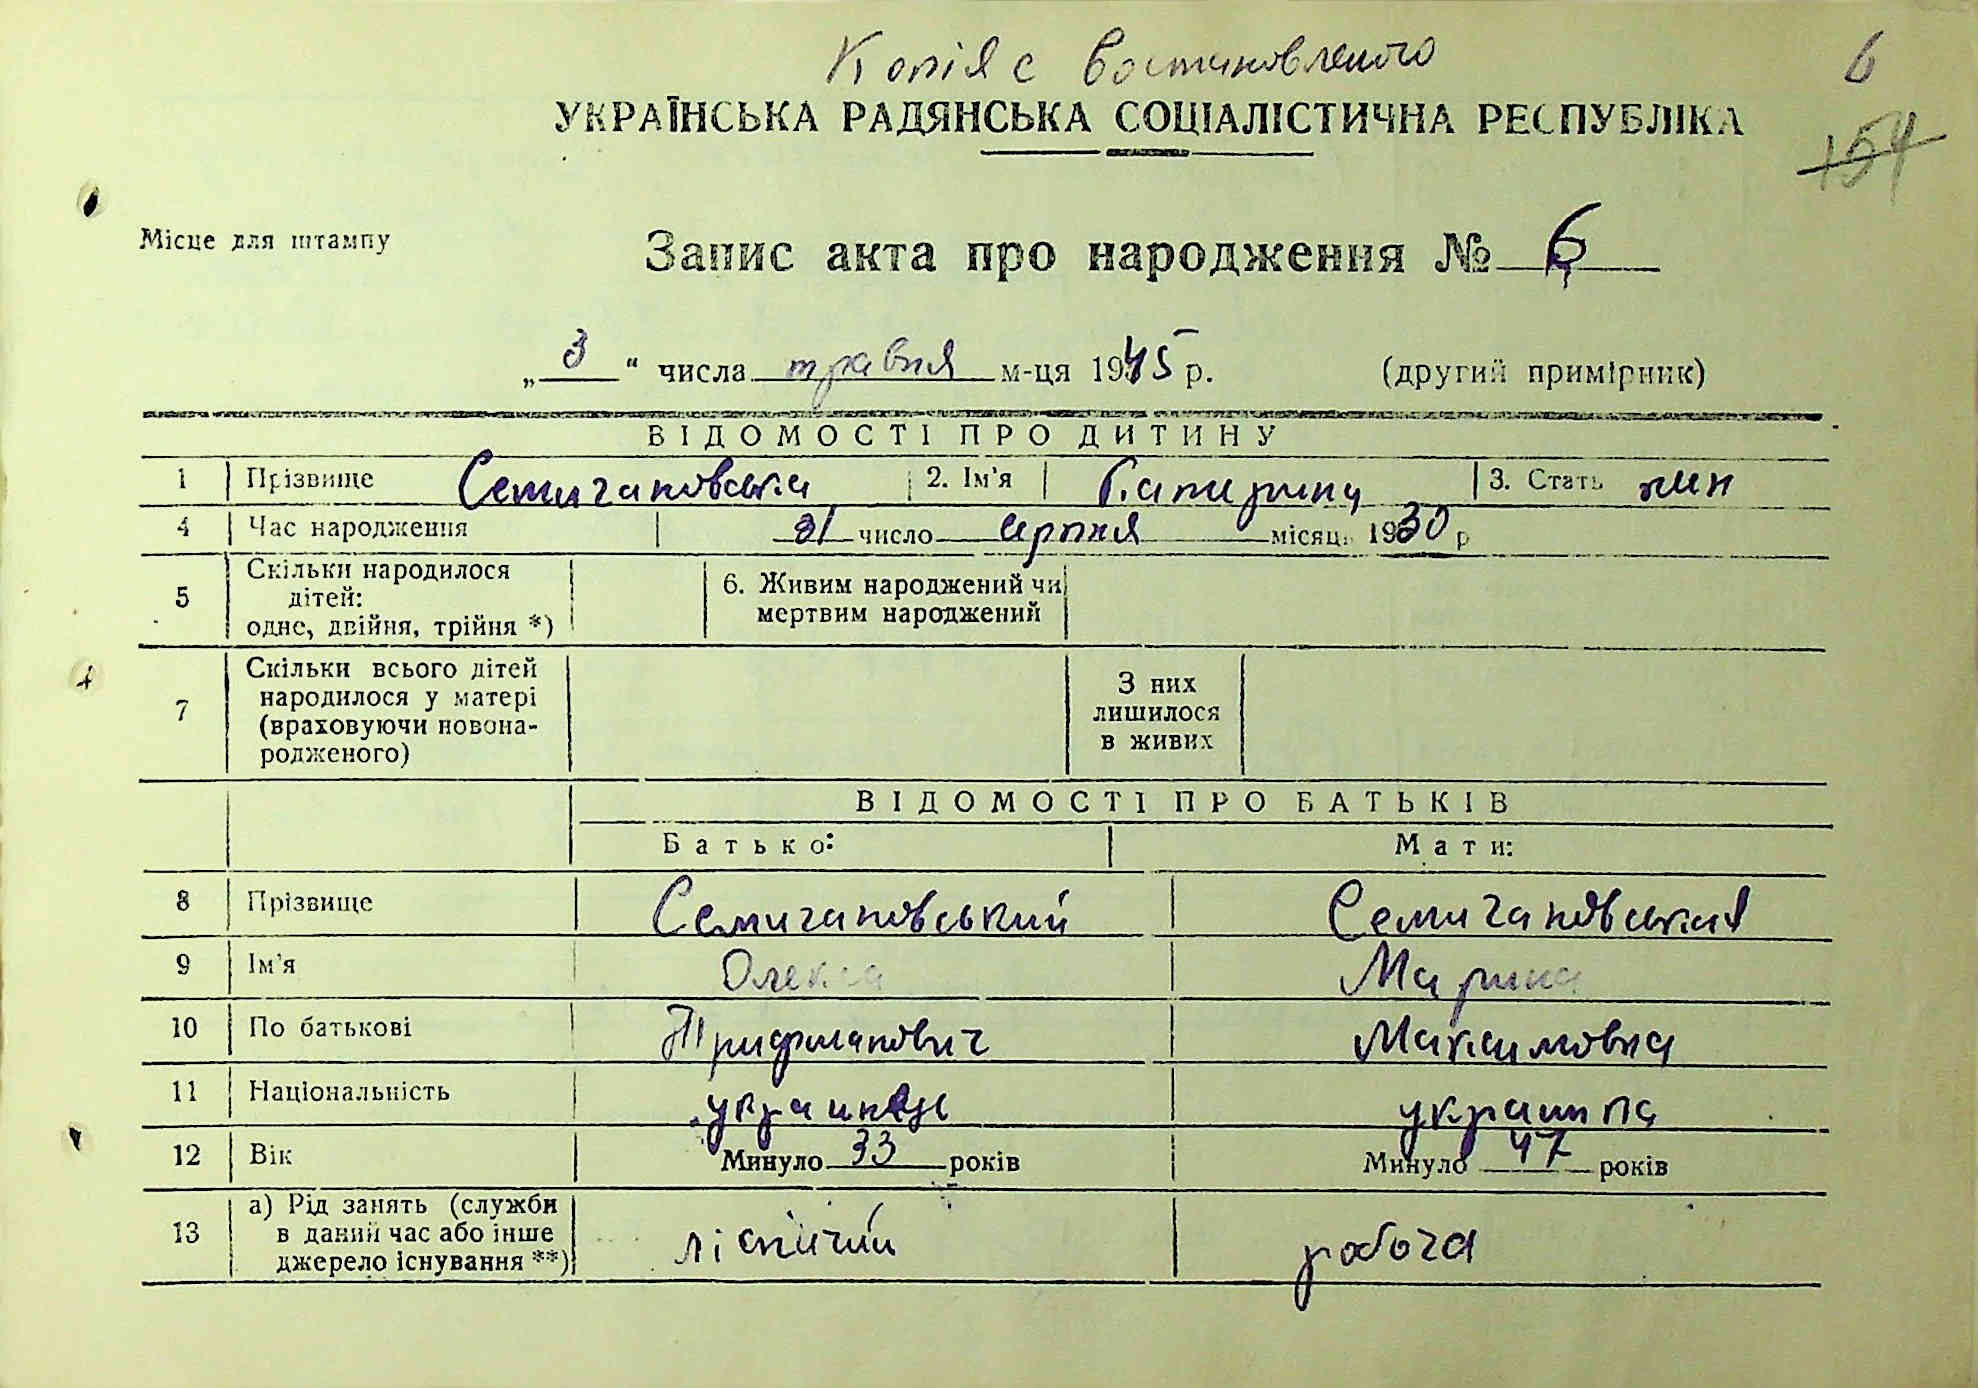 Копія с востановленого
6
УКРАЇНСЬКА РАДЯНСЬКА СОЦІАЛІСТИЧНА РЕСПУБЛІКА
154
Місце для штампу
Запис акта про народження № 6
„ 3 “ числа травня м-ця 1945 р. (другий примірник)
ВІДОМОСТІ ПРО ДИТИНУ
1 Прізвище Семичановська 2. Ім'я Катирина 3. Стать жин
4 Час народження 31 число серпня місяць 1930 р
5 Скільки народилося
дітей:
одне, двійня, трійня *)
6. Живим народжений чи
мертвим народжений
7 Скільки всього дітей
народилося у матері
(враховуючи новона-
родженого)
З них
лишилося
в живих
ВІДОМОСТІ ПРО БАТЬКІВ
Батько: Мати:
8 Прізвище Семичановський Семичановская
9 Ім'я Олекса Марина
10 По батькові Трифманович Максимовна
11 Національність украинець украинка
12 Вік Минуло 33 років Минуло 47 років
13 а) Рід занять (служби
в даний час або інше
джерело існування **)
лісничий робоча